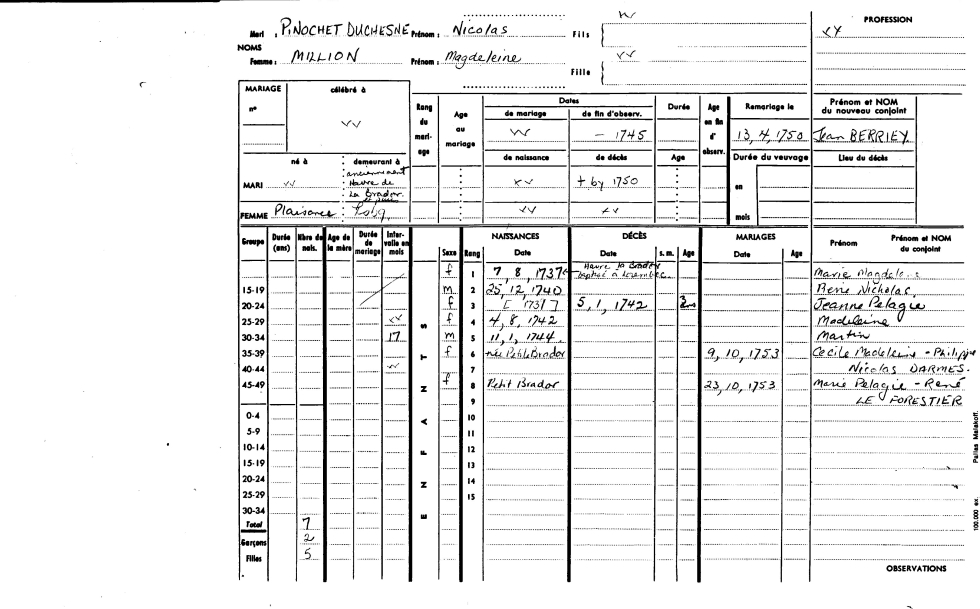 Mari : PINOCHET DUCHESNE Prénom : Nicolas Fils vv PROFESSION
vv
NOMS
Femme : MILLION Prénom : Magdeleine Fille vv
MARIAGE célébré à
n° vv
Rang du mariage
Age au mariage
Dates
de mariage de fin d'observ.
vv - 1745
Durée
Age en fin d'observ.
Remariage le
13, 4, 1750
Prénom et NOM du nouveau conjoint
Jean BERRIEY
né à demeurant à
de naissance de décès Age
Durée du veuvage
Lieu du décès
MARI vv anciennement Havre de La Brador.
vv + by 1750
en
mois
FEMME Plaisance
vv vv
Groupe Durée (ans) Nbre de nais. Age de la mère Durée de mariage Intervalle en mois
E N F A N T S
Sexe Rang NAISSANCES Date DÉCÈS Date s. m. Age MARIAGES Date Age Prénom Prénom et NOM du conjoint
f 1 7, 8, 1737 Havre la Brador Marie Magdeleine
15-19 m 2 25, 12, 1740 René Nicholas
20-24 f 3 [ 1731 ] 5, 1, 1742 Jeanne Pelagie
25-29 vv f 4 4, 8, 1742 Madeleine
30-34 17 m 5 11, 1, 1744. Martin
35-39 f 6 née Petit Brador 9, 10, 1753 Cecile Madeleine - Philippe
40-44 vv 7 Nicolas DARMES.
45-49 f 8 Petit Brador 23, 10, 1753 Marie Pelagie - René
9 LE FORESTIER
0-4 10
5-9 11
10-14 12
15-19 13
20-24 14
25-29 15
30-34
Total 7
Garçons 2
Filles 5
OBSERVATIONS
100.000 ex. Pallas Malakoff.